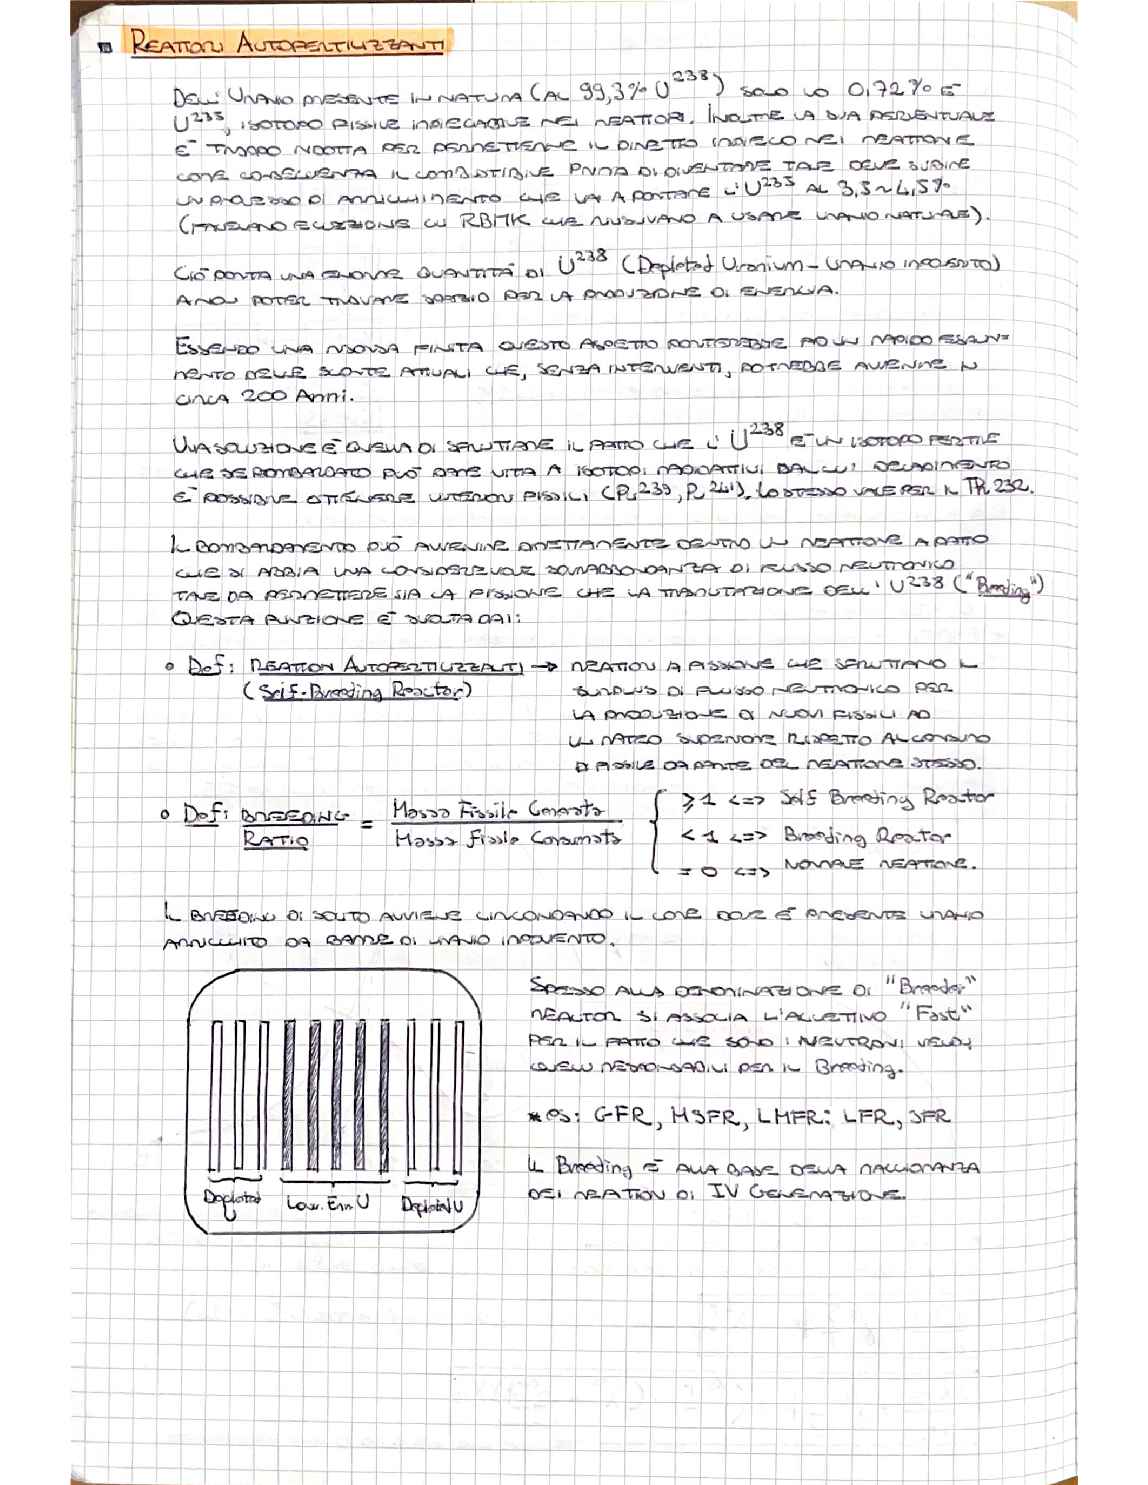 REATTORI AUTOFERTILIZZANTI
DELL'URANIO PRESENTE IN NATURA (AL 99,3% U²³⁸) SOLO LO 0,72% È
U²³⁵, ISOTOPO FISSILE IMPIEGABILE NEI REATTORI. INOLTRE LA SUA PERCENTUALE
È TROPPO RIDOTTA PER PERMETTERNE IL DIRETTO IMPIEGO NEI REATTORI E
COME CONSEGUENZA IL COMBUSTIBILE PRIMA DI DIVENTARE TALE DEVE SUBIRE
UN PROCESSO DI ARRICCHIMENTO CHE VA A PORTARE L'U²³⁵ AL 3,5~4,5%
(FACEVANO ECCEZIONE GLI RBMK CHE RIUSCIVANO A USARE URANIO NATURALE).
CIÒ PORTA UNA ENORME QUANTITÀ DI U²³⁸ (Depleted Uranium - URANIO IMPOVERITO)
A NON POTER TROVARE SPAZIO PER LA PRODUZIONE DI ENERGIA.
ESSENDO UNA RISORSA FINITA QUESTO ASPETTO PORTEREBBE AD UN RAPIDO ESAURI=
MENTO DELLE SCORTE ATTUALI CHE, SENZA INTERVENTI, POTREBBE AVVENIRE IN
CIRCA 200 Anni.
UNA SOLUZIONE È QUELLA DI SFRUTTARE IL FATTO CHE L'U²³⁸ È UN ISOTOPO FERTILE
CHE SE BOMBARDATO PUÒ DARE VITA A ISOTOPI RADIOATTIVI DAL CUI DECADIMENTO
È POSSIBILE OTTENERE ULTERIORI FISSILI (Pu²³⁹, Pu²⁴¹). LO STESSO VALE PER IL Th 232.
IL BOMBARDAMENTO PUÒ AVVENIRE DIRETTAMENTE DENTRO UN REATTORE A PATTO
CHE SI ABBIA UNA CONSIDEREVOLE SOVRABBONDANZA DI FLUSSO NEUTRONICO
TALE DA PERMETTERE SIA LA FISSIONE CHE LA TRASMUTAZIONE DELL'U²³⁸ ("Breeding")
QUESTA FUNZIONE È SVOLTA DAI:
• Def: REATTORI AUTOFERTILIZZANTI → REATTORI A FISSIONE CHE SFRUTTANO IL
(Self-Breeding Reactor) SURPLUS DI FLUSSO NEUTRONICO PER
LA PRODUZIONE DI NUOVI FISSILI AD
UN RATEO SUPERIORE RISPETTO AL CONSUMO
DI FISSILE DA PARTE DEL REATTORE STESSO.
• Def: BREEDING RATIO = Massa Fissile Generata / Massa Fissile Consumata
⩾1 <=> Self Breeding Reactor
<1 <=> Breeding Reactor
=0 <=> NORMALE REATTORE.
IL BREEDING DI SOLITO AVVIENE CIRCONDANDO IL CORE DOVE È PRESENTE URANIO
ARRICCHITO DA BARRE DI URANIO IMPOVERITO.
SPESSO ALLA DENOMINAZIONE DI "Breeder"
REACTOR SI ASSOCIA L'AGGETTIVO "Fast"
PER IL FATTO CHE SONO I NEUTRONI VELOCI
QUELLI RESPONSABILI PER IL Breeding.
* es: GFR, MSFR, LMFR: LFR, SFR
IL Breeding È ALLA BASE DELLA MAGGIORANZA
DEI REATTORI DI IV GENERAZIONE.
Depleted U
Low. Enr. U
Depleted U